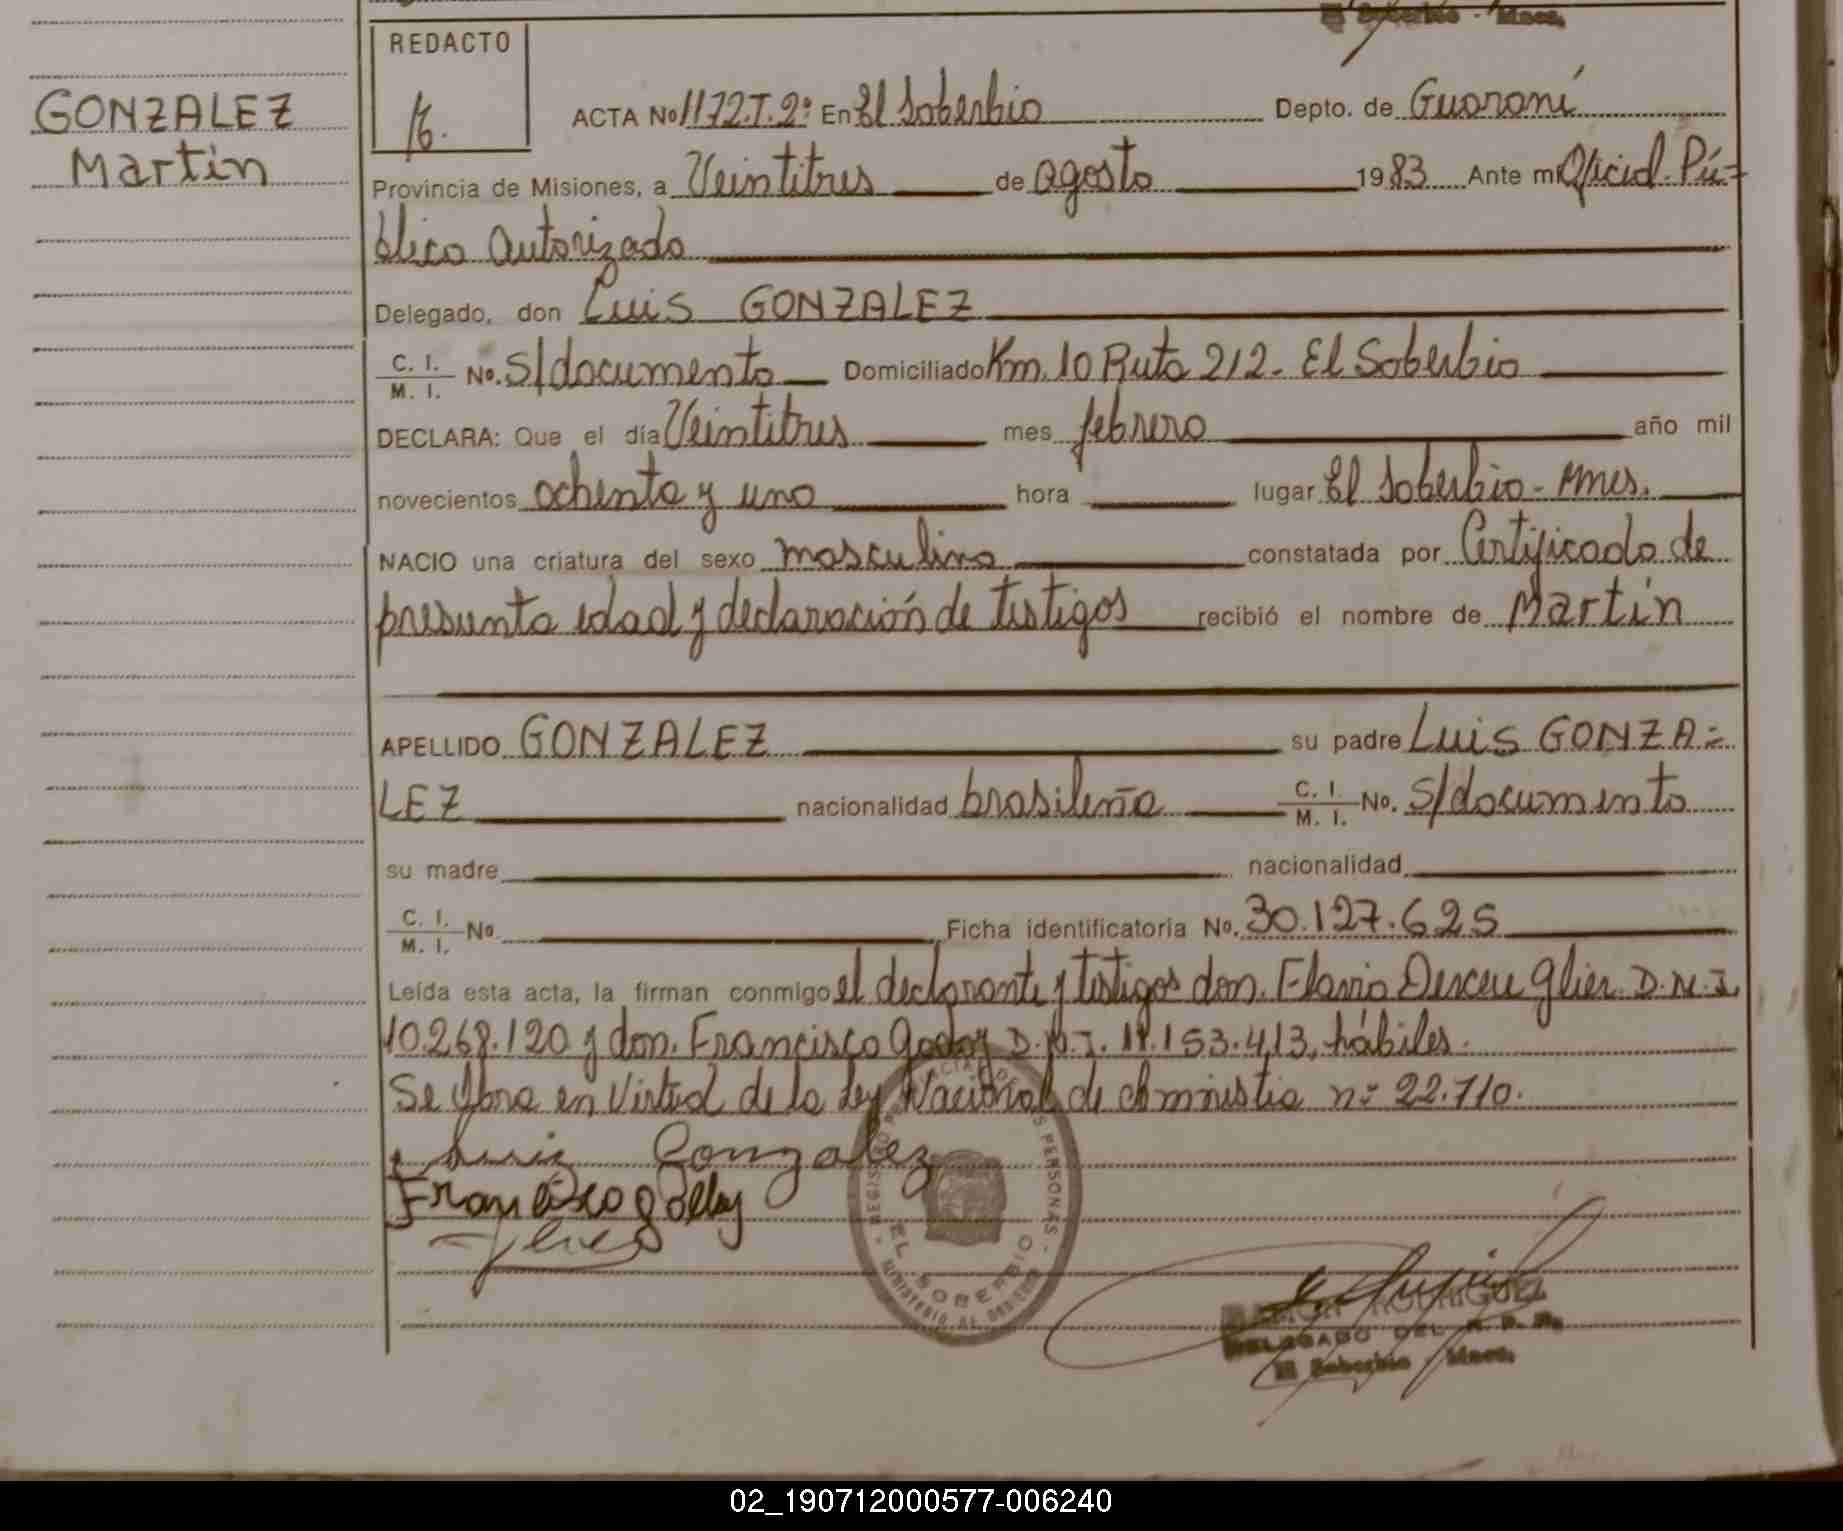 El Soberbio - Mnes.
REDACTO
GONZALEZ
Martín
ACTA No 1172.T.2º En El Soberbio Depto. de Guaraní
Provincia de Misiones, a Veintitres de agosto 1983 Ante mi Oficial Pú=
blico Autorizado
Delegado, don Luis GONZALEZ
C. I. M. I. No. S/documento Domiciliado Km. 10 Ruta 212 - El Soberbio
DECLARA: Que el día Veintitres mes febrero año mil
novecientos ochenta y uno hora lugar El Soberbio - Mnes.
NACIO una criatura del sexo masculino constatada por Certificado de
presunta edad y declaración de testigos recibió el nombre de Martín
APELLIDO GONZALEZ su padre Luis GONZA=
LEZ nacionalidad brasileña C. I. M. I. No. S/documento
su madre nacionalidad
C. I. M. I. No. Ficha identificatoria No. 30.127.625
Leída esta acta, la firman conmigo el declarante y testigos don. Flavio Derceu Glier D.N.I.
10.268.120 y don. Francisco Godoy D.N.I. 11.153.413, hábiles.
Se labra en Virtud de la Ley Nacional de Amnistia nº 22.710.
Luis Gonzalez
Francisco
EL SOBERBIO
DELEGADO DEL R. P. P.
El Soberbio - Mnes.
02_190712000577-006240